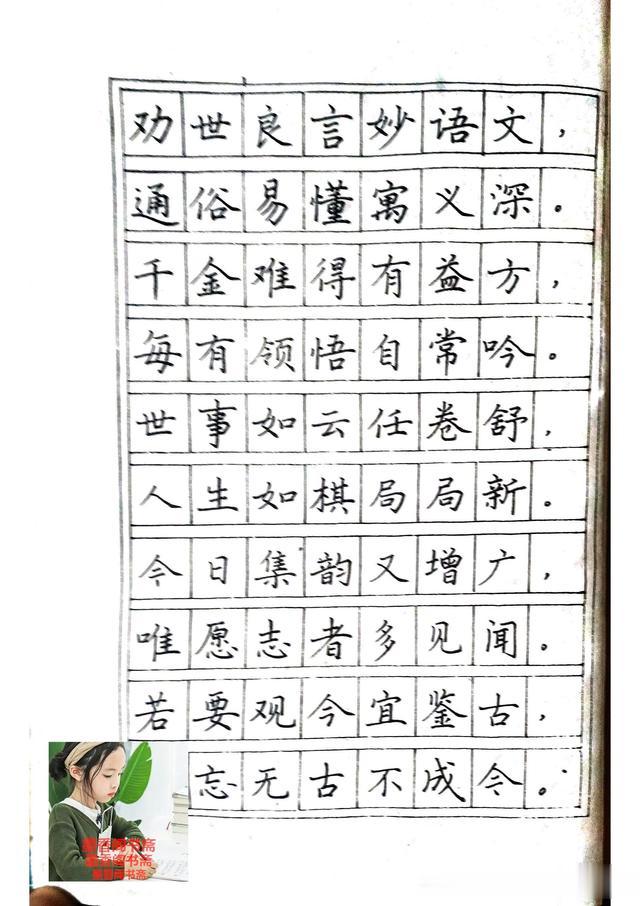 劝世良言妙语文，
通俗易懂寓义深。
千金难得有益方，
每有领悟自常吟。
世事如云任卷舒，
人生如棋局局新。
今日集韵又增广，
唯愿志者多见闻。
若要观今宜鉴古，
忘无古不成今。
香阁书斋
香阁书斋
香阁书斋